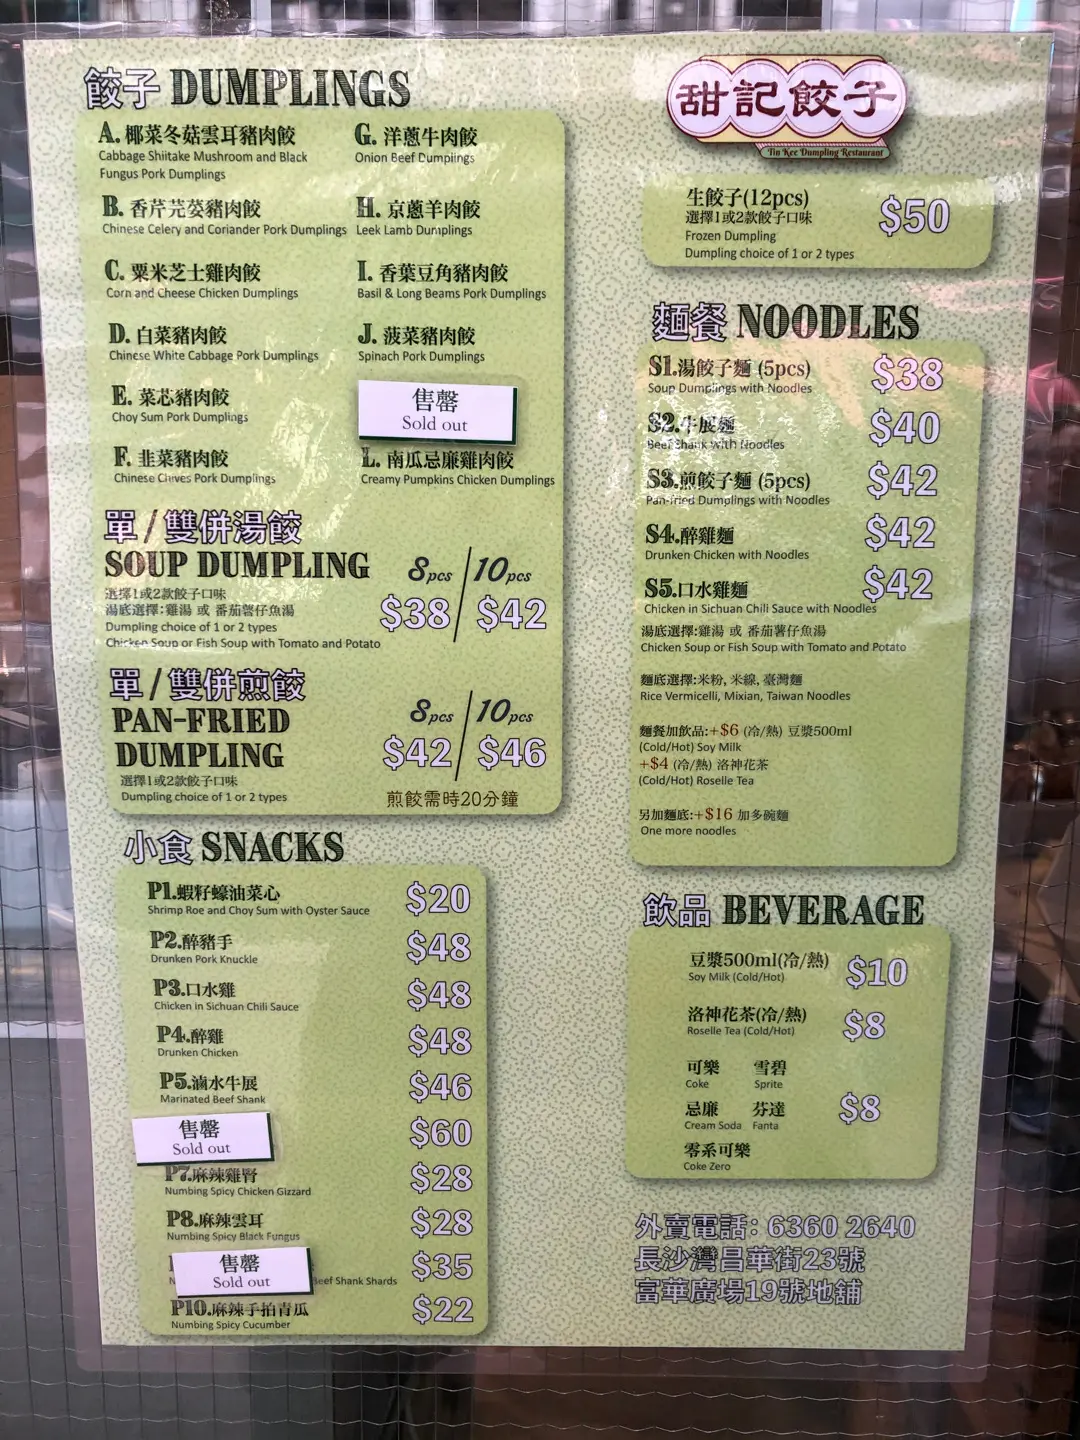 餃子 DUMPLINGS
A. 椰菜冬菇雲耳豬肉餃
Cabbage Shiitake Mushroom and Black
Fungus Pork Dumplings
B. 香芹芫荽豬肉餃
Chinese Celery and Coriander Pork Dumplings
C. 粟米芝士雞肉餃
Corn and Cheese Chicken Dumplings
D. 白菜豬肉餃
Chinese White Cabbage Pork Dumplings
E. 菜芯豬肉餃
Choy Sum Pork Dumplings
F. 韭菜豬肉餃
Chinese Chives Pork Dumplings
G. 洋蔥牛肉餃
Onion Beef Dumplings
H. 京蔥羊肉餃
Leek Lamb Dumplings
I. 香葉豆角豬肉餃
Basil & Long Beams Pork Dumplings
J. 菠菜豬肉餃
Spinach Pork Dumplings
售罄
Sold out
L. 南瓜忌廉雞肉餃
Creamy Pumpkins Chicken Dumplings
單/雙併湯餃
SOUP DUMPLING
8pcs/10pcs
$38/$42
選擇1或2款餃子口味
湯底選擇:雞湯 或 番茄薯仔魚湯
Dumpling choice of 1 or 2 types
Chicken Soup or Fish Soup with Tomato and Potato
單/雙併煎餃
PAN-FRIED
DUMPLING
8pcs/10pcs
$42/$46
選擇1或2款餃子口味
Dumpling choice of 1 or 2 types
煎餃需時20分鐘
小食 SNACKS
P1.蝦籽蠔油菜心 $20
Shrimp Roe and Choy Sum with Oyster Sauce
P2.醉豬手 $48
Drunken Pork Knuckle
P3.口水雞 $48
Chicken in Sichuan Chili Sauce
P4.醉雞 $48
Drunken Chicken
P5.滷水牛展 $46
Marinated Beef Shank
售罄 $60
Sold out
P7.麻辣雞腎 $28
Numbing Spicy Chicken Gizzard
P8.麻辣雲耳 $28
Numbing Spicy Black Fungus
售罄 $35
Sold out
Beef Shank Shards
P10.麻辣手拍青瓜 $22
Numbing Spicy Cucumber
甜記餃子
Tin Kee Dumpling Restaurant
生餃子(12pcs) $50
選擇1或2款餃子口味
Frozen Dumpling
Dumpling choice of 1 or 2 types
麵餐 NOODLES
S1.湯餃子麵 (5pcs) $38
Soup Dumplings with Noodles
S2.牛展麵 $40
Beef Shank with Noodles
S3.煎餃子麵 (5pcs) $42
Pan-fried Dumplings with Noodles
S4.醉雞麵 $42
Drunken Chicken with Noodles
S5.口水雞麵 $42
Chicken in Sichuan Chili Sauce with Noodles
湯底選擇:雞湯 或 番茄薯仔魚湯
Chicken Soup or Fish Soup with Tomato and Potato
麵底選擇:米粉, 米線, 臺灣麵
Rice Vermicelli, Mixian, Taiwan Noodles
麵餐加飲品:+$6 (冷/熱) 豆漿500ml
(Cold/Hot) Soy Milk
+$4 (冷/熱) 洛神花茶
(Cold/Hot) Roselle Tea
另加麵底:+$16 加多碗麵
One more noodles
飲品 BEVERAGE
豆漿500ml(冷/熱) $10
Soy Milk (Cold/Hot)
洛神花茶(冷/熱) $8
Roselle Tea (Cold/Hot)
可樂 雪碧
Coke Sprite
忌廉 芬達 $8
Cream Soda Fanta
零系可樂
Coke Zero
外賣電話: 6360 2640
長沙灣昌華街23號
富華廣場19號地舖